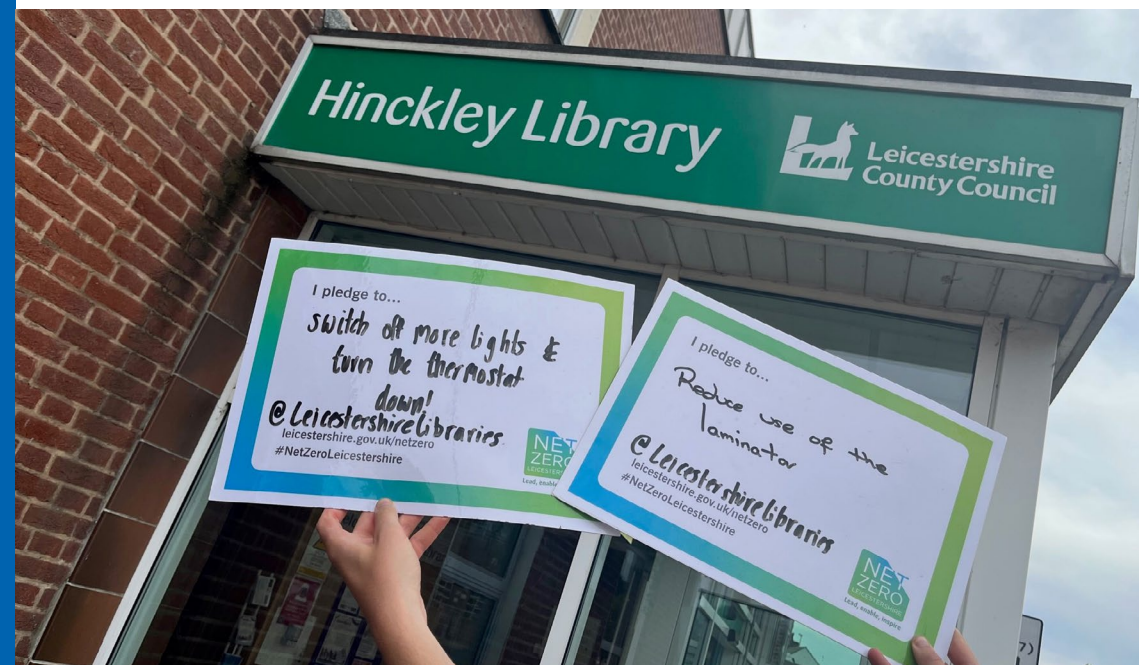 Hinckley Library
Leicestershire
County Council
I pledge to...
switch off more lights &
turn the thermostat
down!
@Leicestershirelibraries
leicestershire.gov.uk/netzero
#NetZeroLeicestershire
NET
ZERO
LEICESTERSHIRE
Lead, enable
I pledge to...
Reduce use of the
laminator
@Leicestershirelibraries
leicestershire.gov.uk/netzero
#NetZeroLeicestershire
NET
ZERO
LEICESTERSHIRE
Lead, enable, inspire.